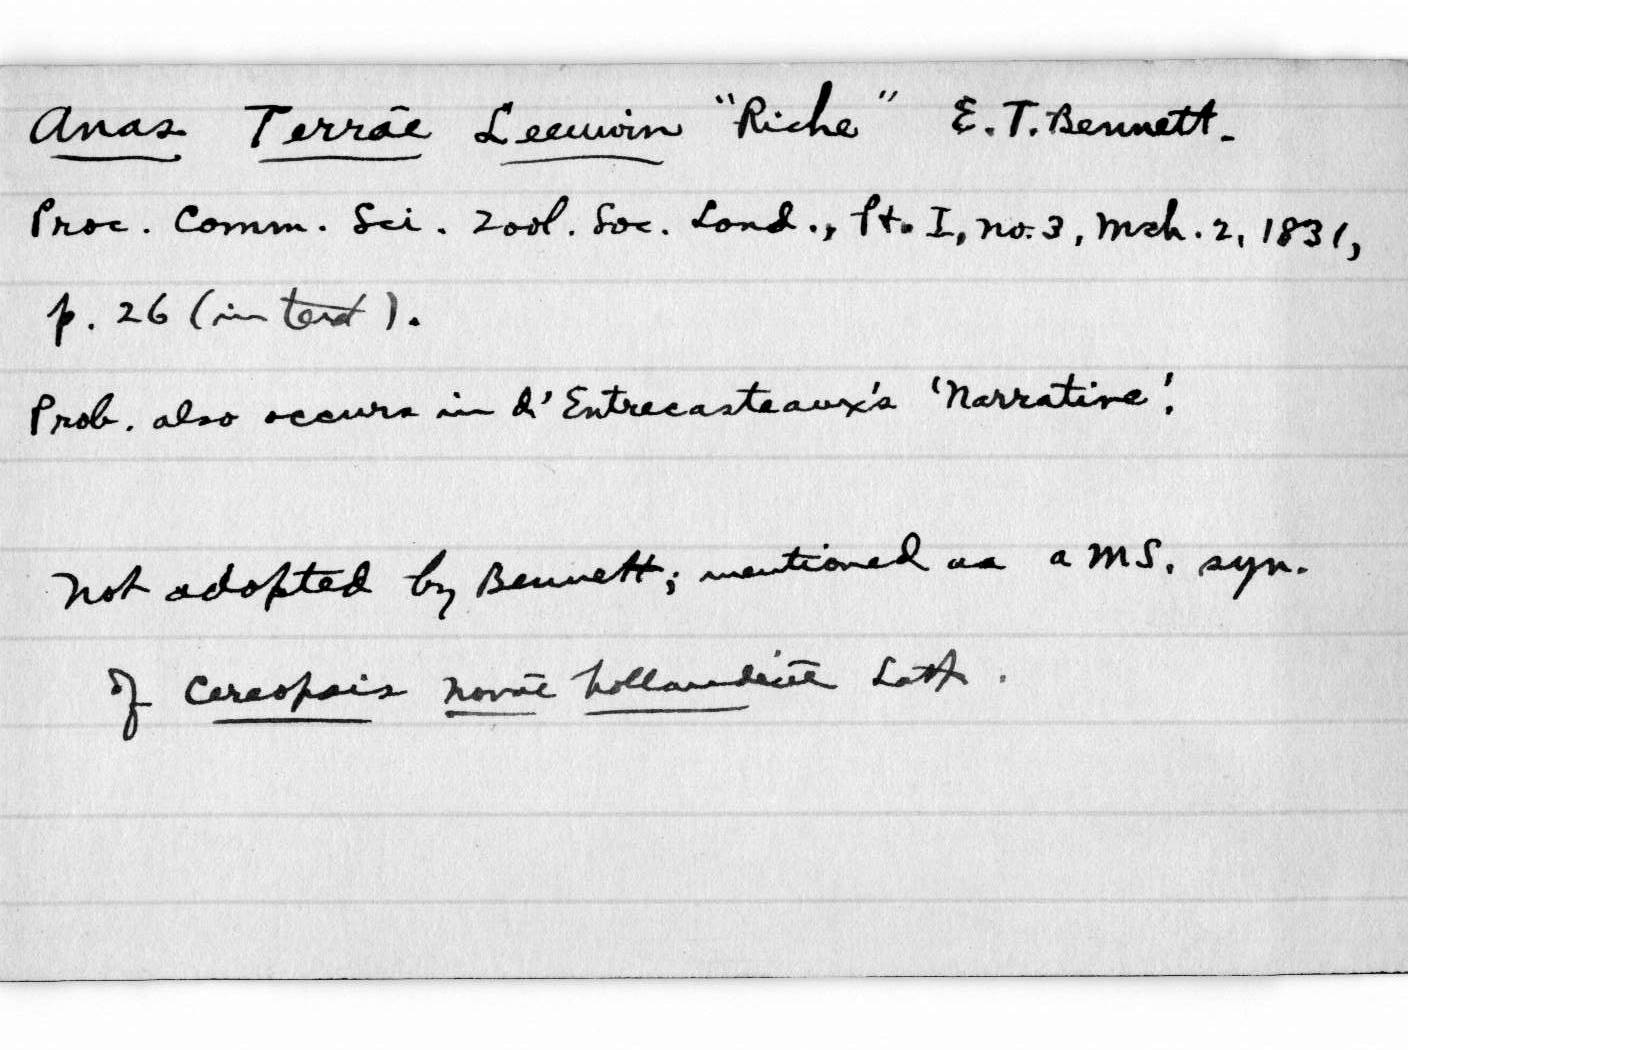 Anas Terrae Leeuwin "Riche" E. T. Bennett.
Proc. Comm. Sci. Zool. Soc. Lond., Pt. I, no. 3, Mch. 2, 1831,
p. 26 (in text).
Prob. also occurs in d'Entrecasteaux's 'Narrative'.
Not adopted by Bennett; mentioned as a MS. syn.
of Cereopsis novae hollandiae Lath.